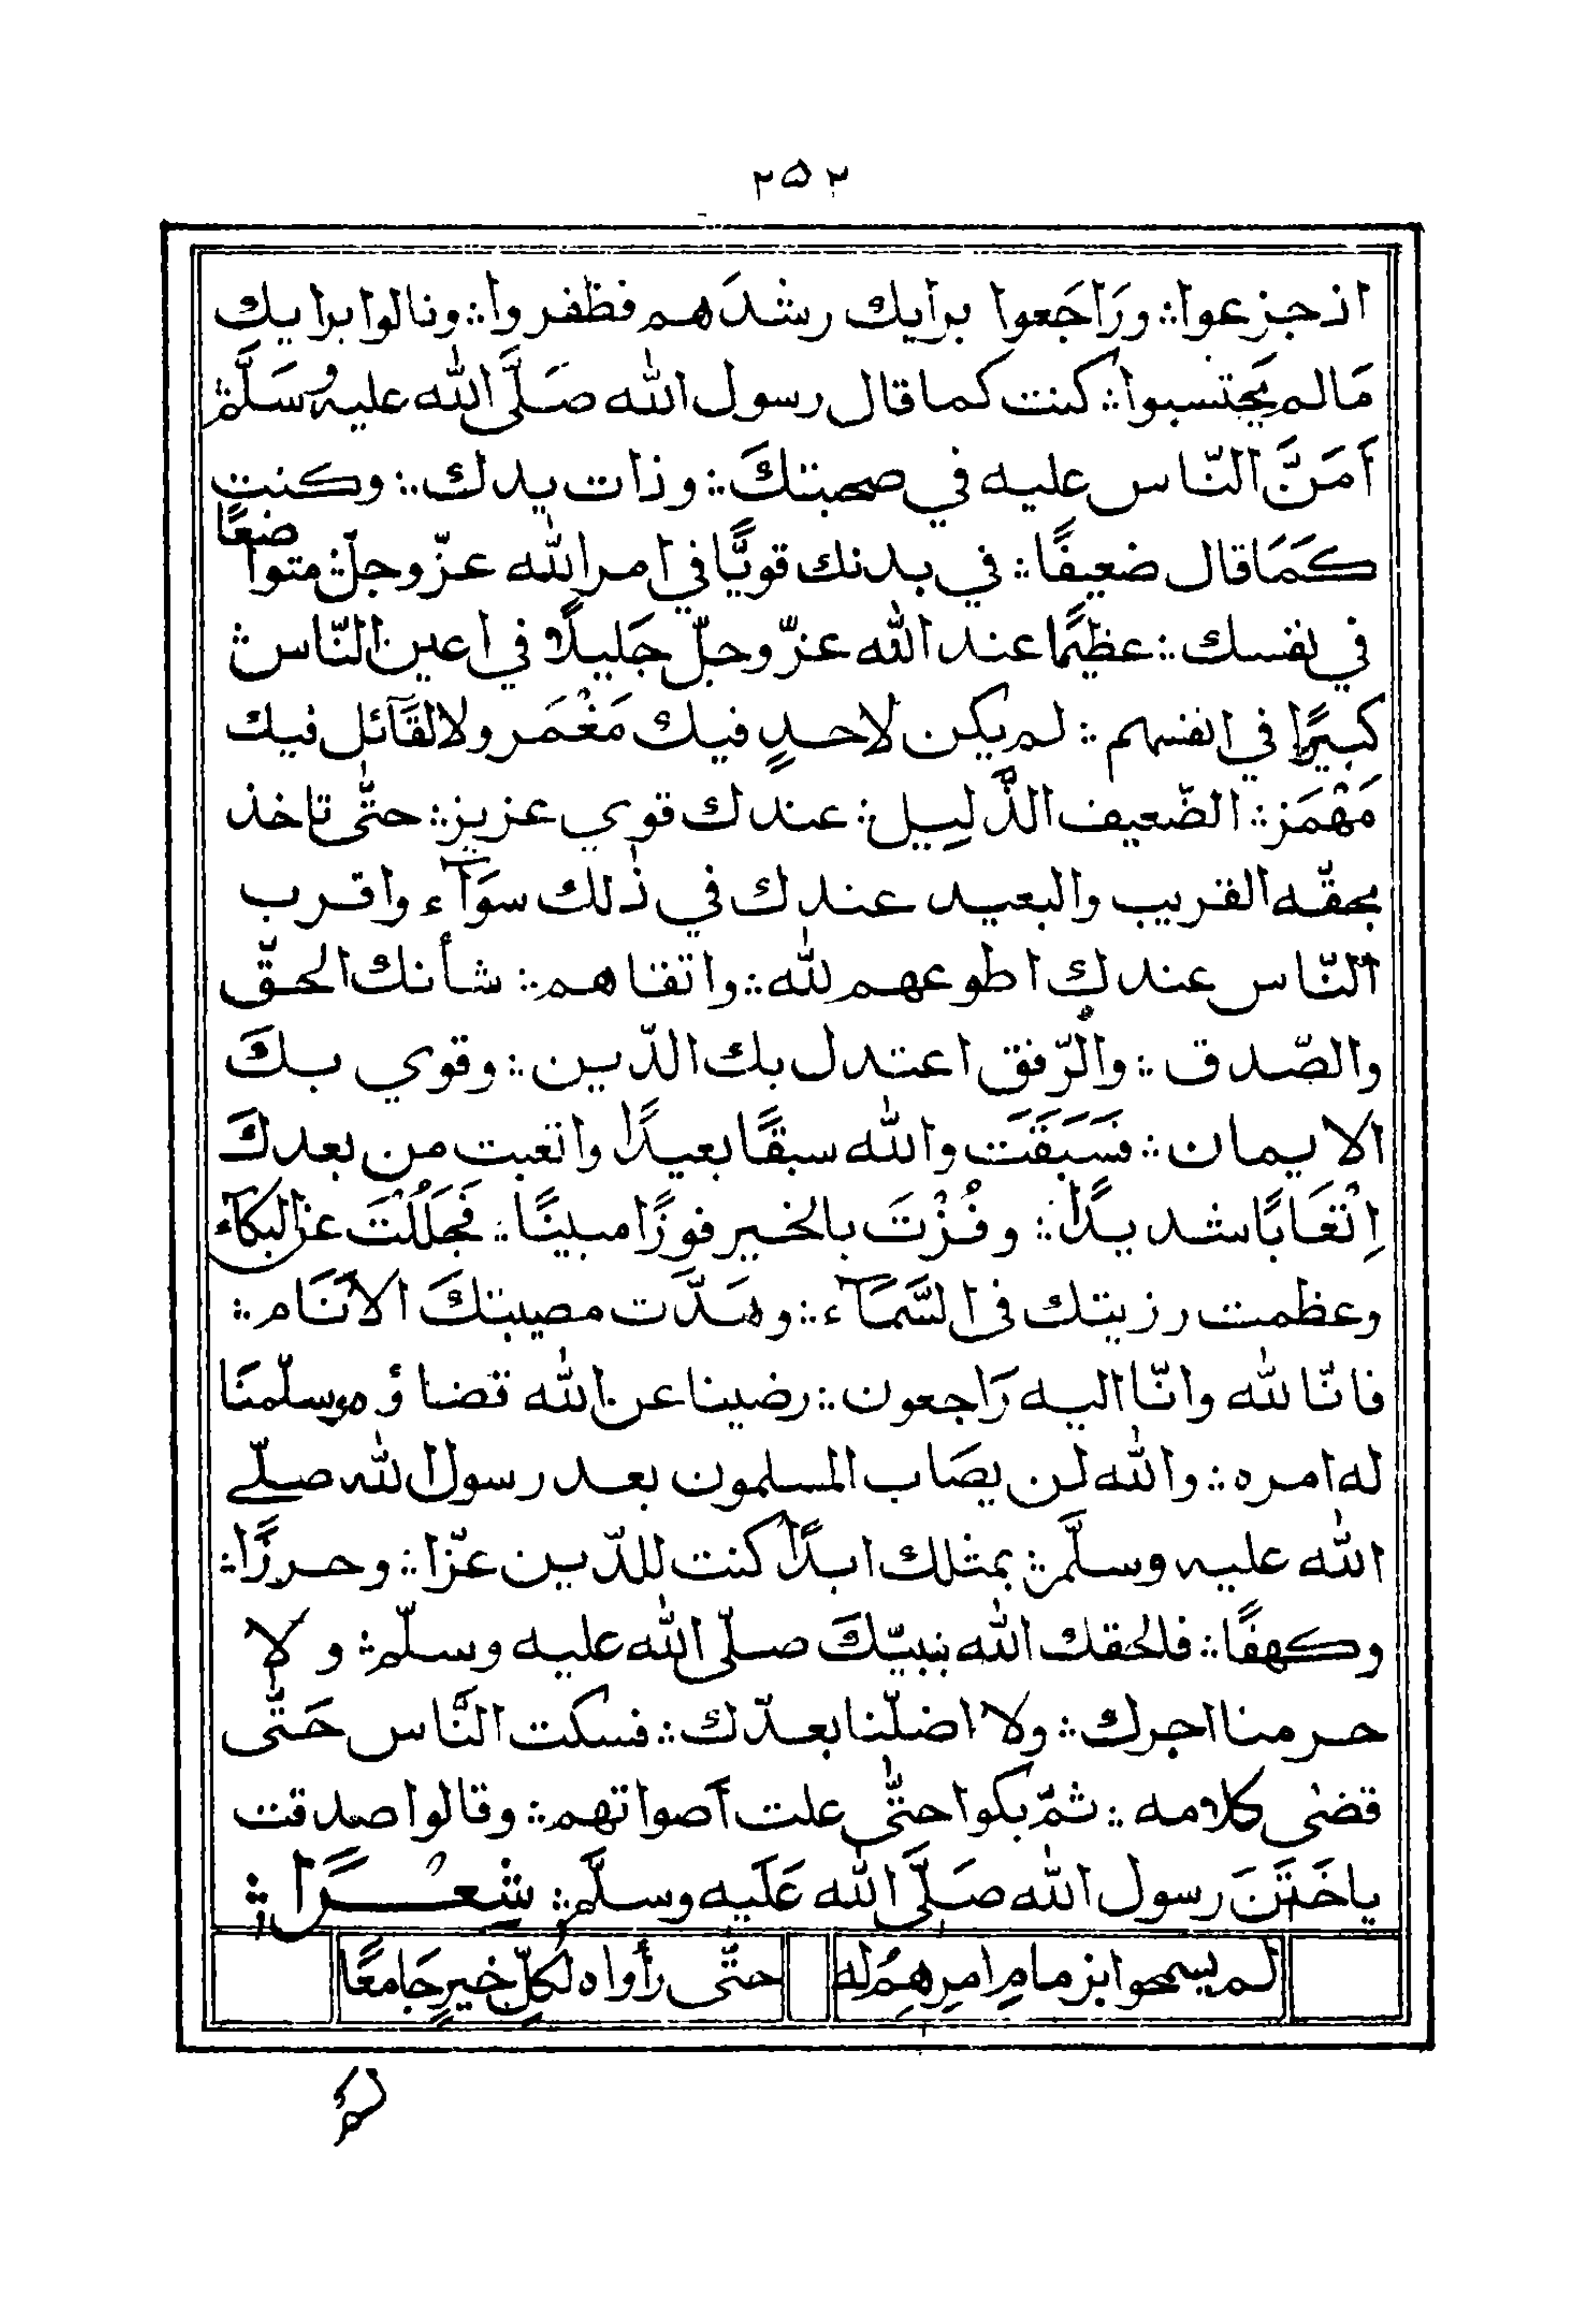 ۲۵۲
اذ جزعوا ؞ ورَاجَعوا برأيك رشدَهم فظفروا ؞ ونالوا برايك
مَا لم يحتسبوا ؞ كنت كما قال رسول الله صَلَّى الله عليه وسَلَّم ؞
أمَنَّ النّاس عليه في صحبتكَ ؞ وذات يدك ؞ وكنت
كَمَا قال ضعيفًا ؞ في بدنك قويًّا في امر الله عزّ وجلّ ؞ متواضعًا
في نفسك ؞ عظيمًا عند الله عزّ وجلّ جَليلًا في اعين النّاس ؞
كبيرًا في انفسهم ؞ لم يكن لاحدٍ فيك مَغْمَز ولا لقَآئل فيك
مَهْمَز ؞ الضّعيف الذّليل ؞ عندك قوي عزيز ؞ حتّى تاخذ
بحقّه القريب والبعيد عندك في ذٰلك سوَآء واقرب
النّاس عندك اطوعهم لله ؞ واتقاهم ؞ شأنك الحقّ
والصّدق ؞ والرّفق اعتدل بك الدّين ؞ وقوي بكَ
الايمان ؞ فسَبَقَتَ والله سبقًا بعيدًا واتعبت من بعدكَ
اِتْعَابًا شديدًا ؞ وفُزْتَ بالخير فوزًا مبينًا ؞ فَجَلَلْتَ عن البكآء
وعظمت رزيتك في السَّمَآء ؞ وهَدَّت مصيبتكَ الأنَام ؞
فانّا لله وانّا اليه رَاجعون ؞ رضينا عن الله قضاؤه وسلّمنَا
له امره ؞ والله لن يصَاب المسلمون بعد رسول الله صلّے
الله عليه وسلَّم ؞ بمثلك ابدًا كنت للدّين عزّا ؞ وحرزًا ؞
وكهفًا ؞ فالحقك الله بنبيّكَ صلّى الله عليه وسلّم ؞ ولا
حرمنا اجرك ؞ ولا اضلّنا بعدّك ؞ فسكت النَّاس حَتّى
قضى كلامه ؞ ثمّ بكوا حتّى علت أصواتهم ؞ وقالوا صدقت
ياخَتَنَ رسول الله صَلَّى الله عَلَيه وسلَّم ؞ شِعْرًا ؞
لم يسمحوا بزمامِ امرِهِمُ له حتّى رأواه لكلّ خيرٍ جَامعًا